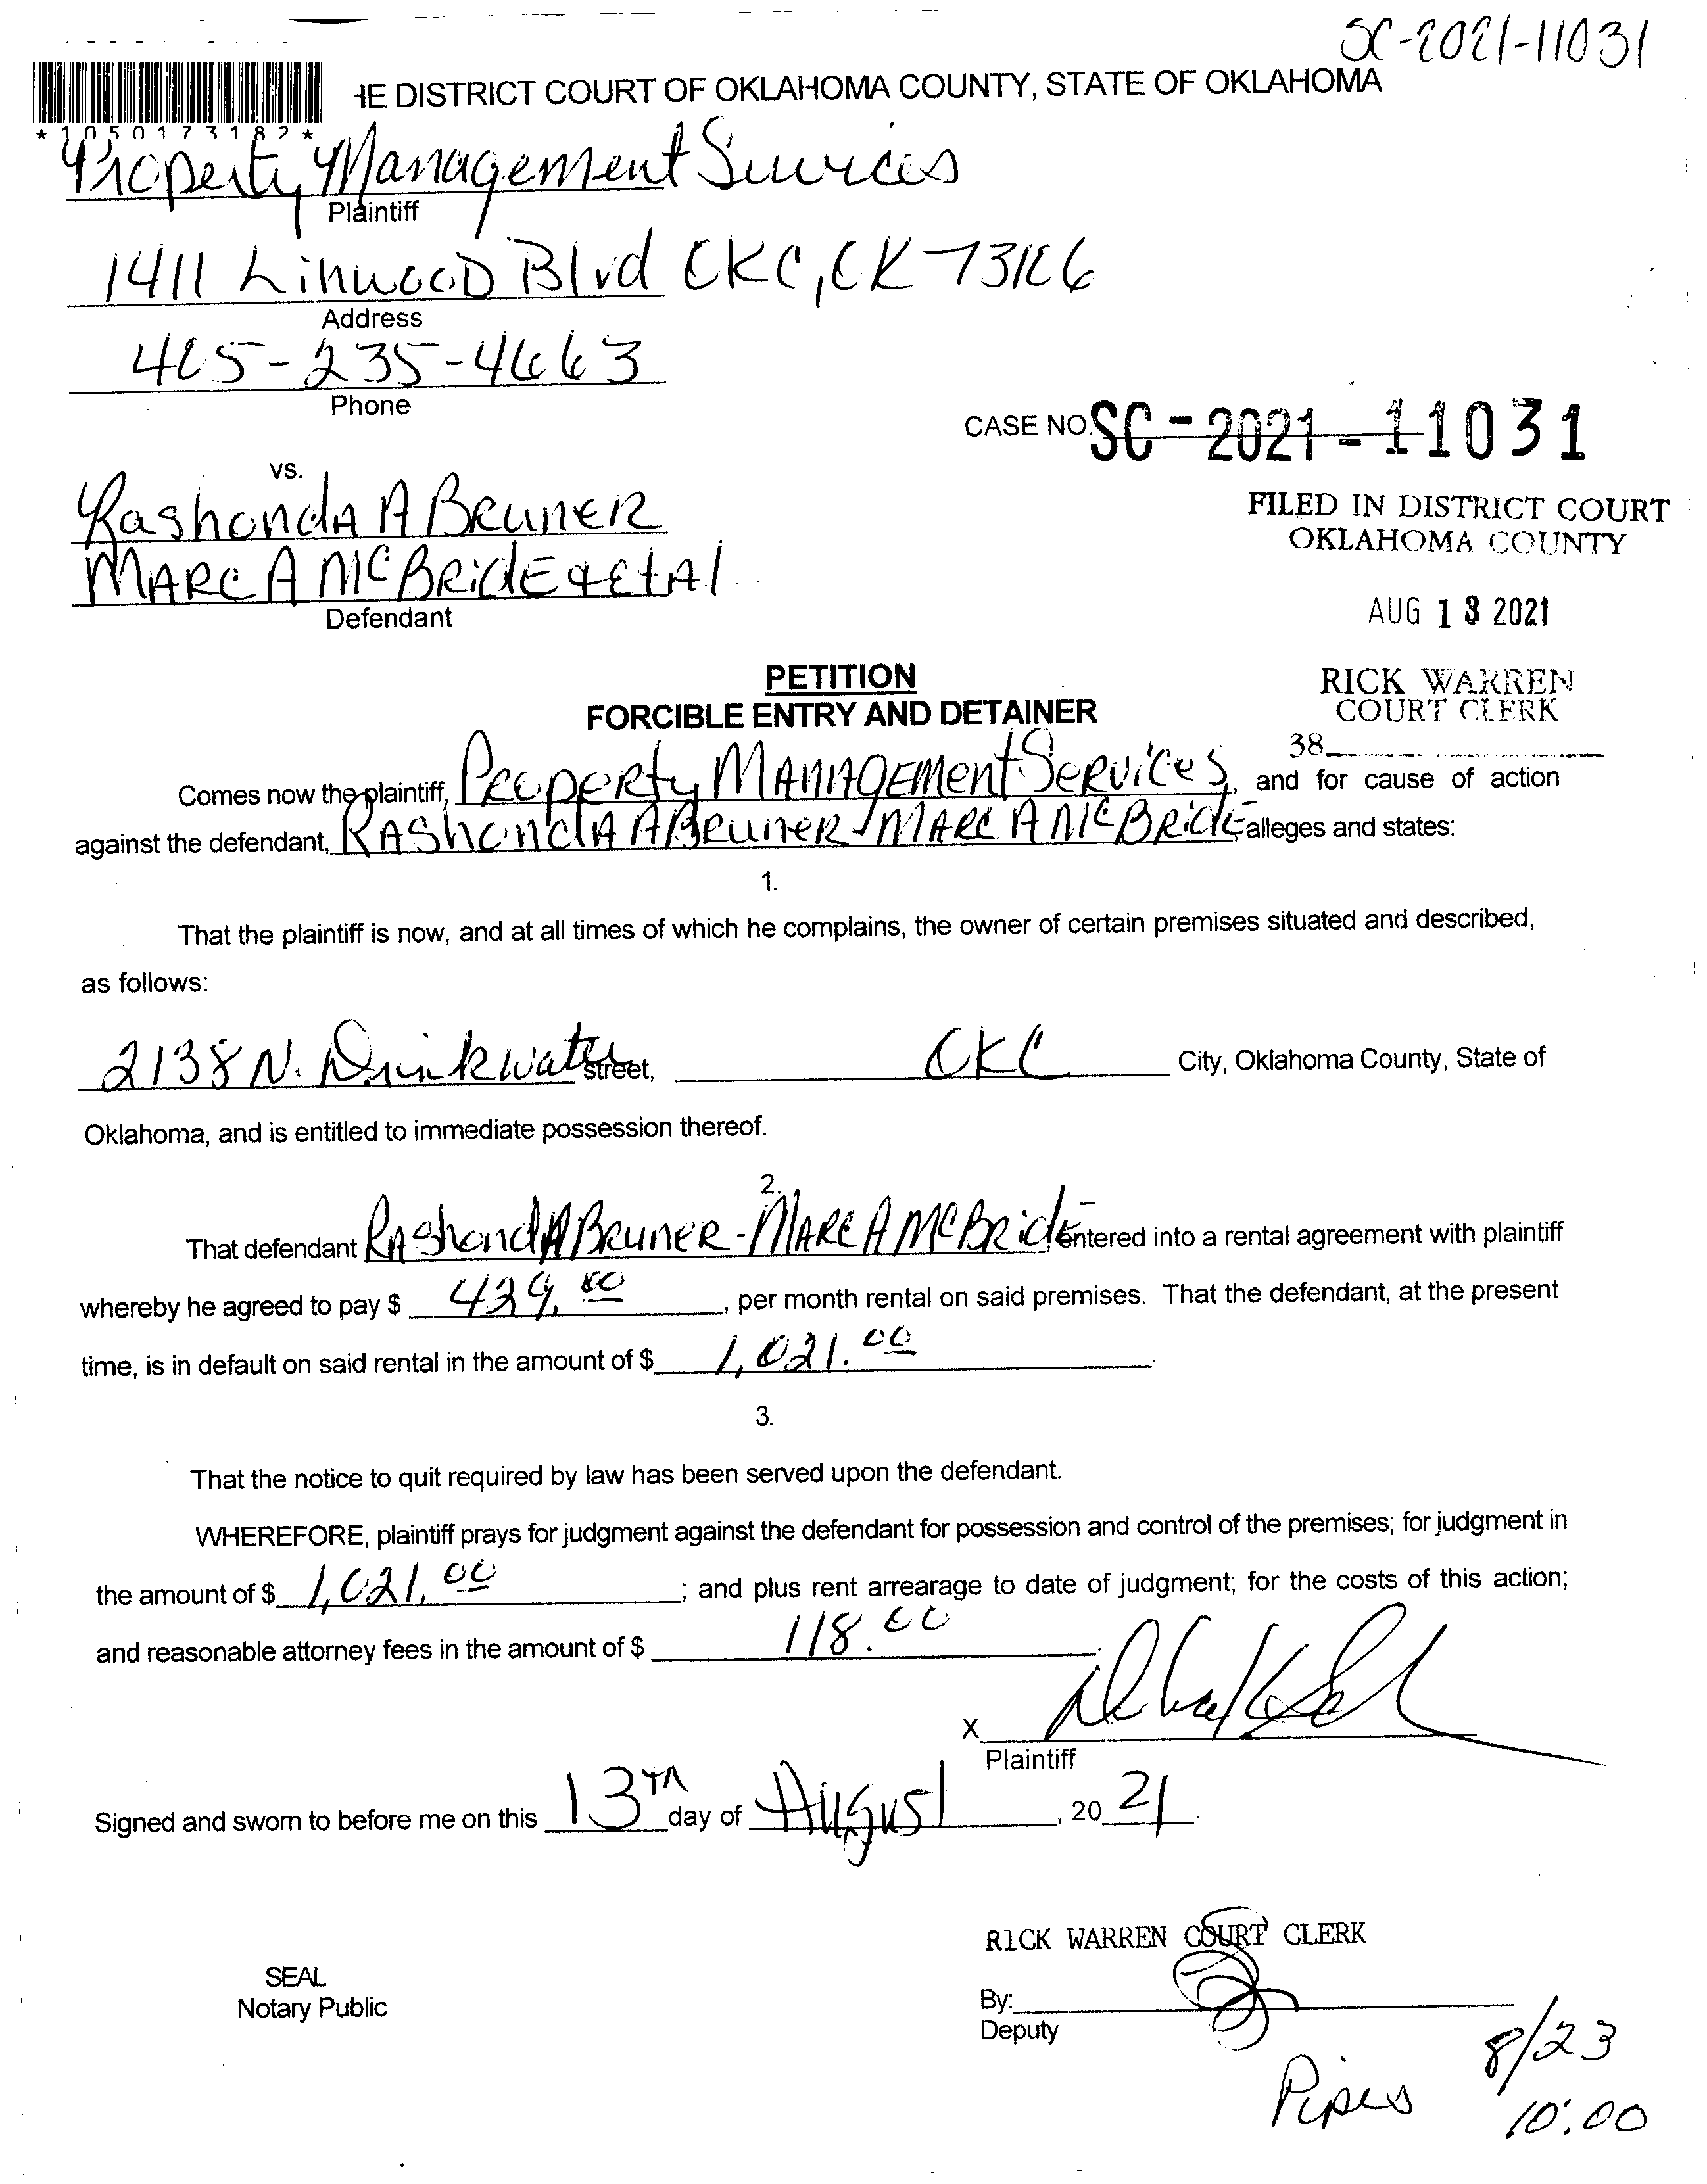 SC-2021-11031
HE DISTRICT COURT OF OKLAHOMA COUNTY, STATE OF OKLAHOMA
*1050173182*
Property Management Services
Plaintiff
1411 Linwood Blvd OKC, OK 73106
Address
405-235-4663
Phone
CASE NO. SC-2021-11031
vs.
Rashonda A Bruner
FILED IN DISTRICT COURT
OKLAHOMA COUNTY
Marc A McBride & etal
Defendant
AUG 13 2021
PETITION
RICK WARREN
FORCIBLE ENTRY AND DETAINER
COURT CLERK
38
Comes now the plaintiff, Property Management Services, and for cause of action
against the defendant, Rashonda A Bruner - Marc A McBride alleges and states:
1.
That the plaintiff is now, and at all times of which he complains, the owner of certain premises situated and described,
as follows:
2138 N. Drinkwater street, OKC City, Oklahoma County, State of
Oklahoma, and is entitled to immediate possession thereof.
2.
That defendant Rashonda A Bruner - Marc A McBride, entered into a rental agreement with plaintiff
whereby he agreed to pay $ 429.00, per month rental on said premises. That the defendant, at the present
time, is in default on said rental in the amount of $ 1,021.00.
3.
That the notice to quit required by law has been served upon the defendant.
WHEREFORE, plaintiff prays for judgment against the defendant for possession and control of the premises; for judgment in
the amount of $ 1,021.00; and plus rent arrearage to date of judgment; for the costs of this action;
and reasonable attorney fees in the amount of $ 118.00.
X
Plaintiff
Signed and sworn to before me on this 13th day of August, 20 21.
RICK WARREN COURT CLERK
SEAL
Notary Public
By:
Deputy
8/23
Pipes
10:00